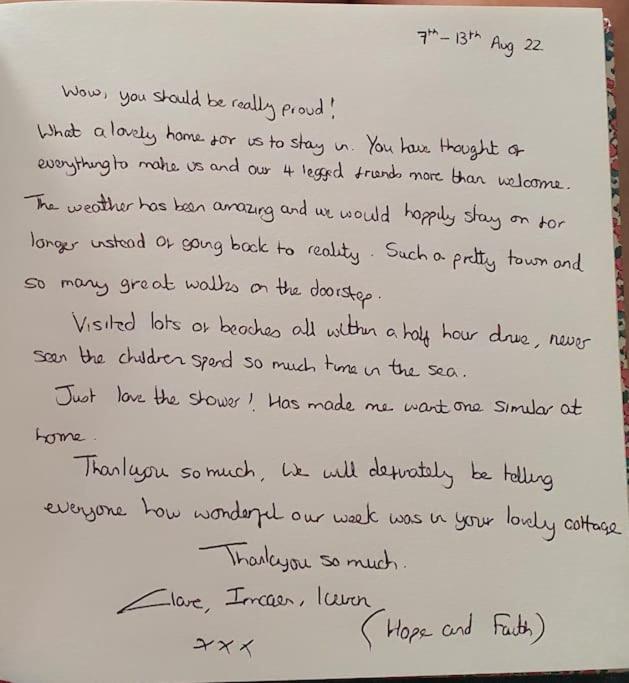 7th - 13th Aug 22
Wow, you should be really proud!
What a lovely home for us to stay in. You have thought of
everything to make us and our 4 legged friends more than welcome.
The weather has been amazing and we would happily stay on for
longer instead of going back to reality. Such a pretty town and
so many great walks on the doorstep.
Visited lots of beaches all within a half hour drive, never
seen the children spend so much time in the sea.
Just love the shower! Has made me want one similar at
home.
Thankyou so much, We will definately be telling
everyone how wonderful our week was in your lovely cottage
Thankyou so much.
Clare,
(Hope and Faith)
xxx